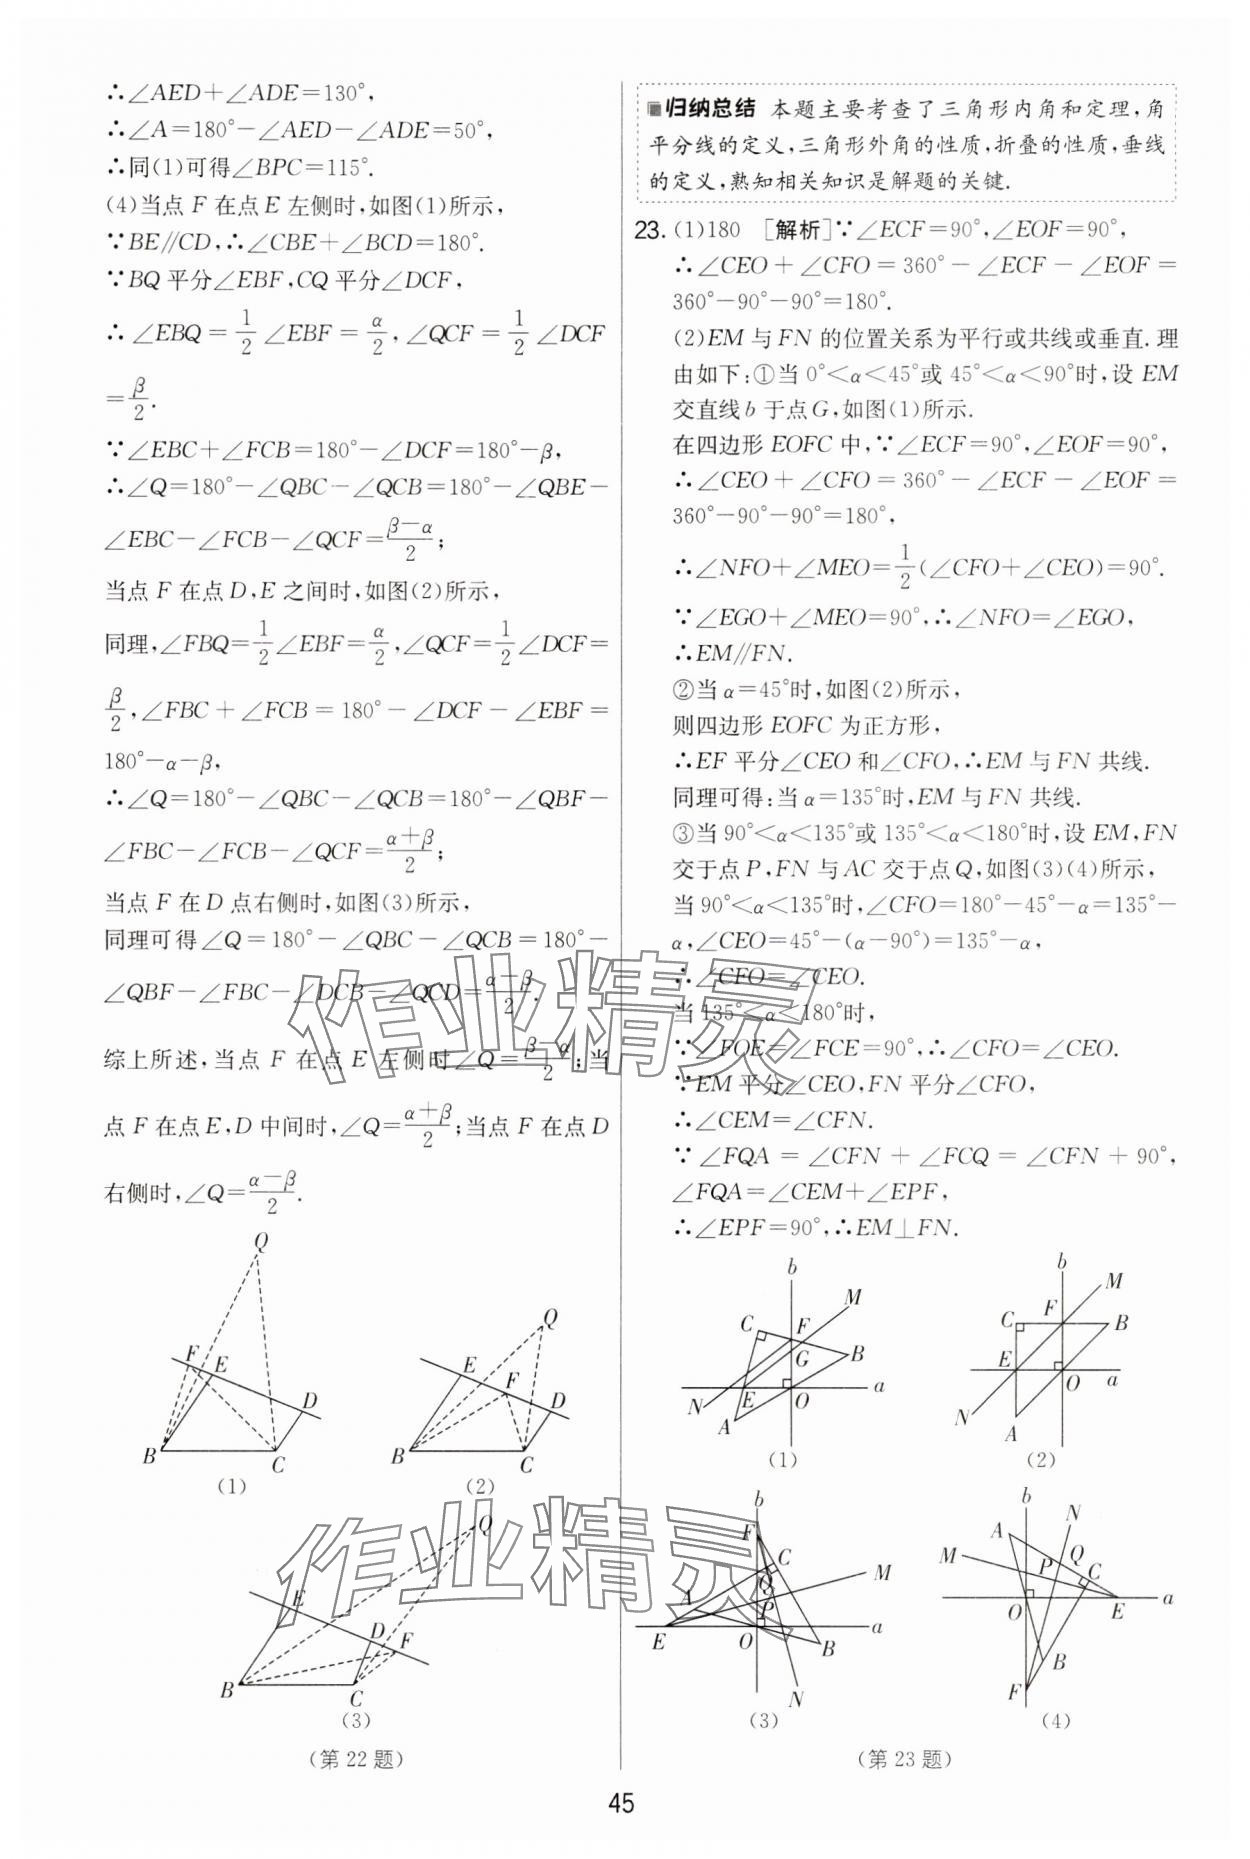 ∴∠AED+∠ADE=130°,
∴∠A=180°-∠AED-∠ADE=50°,
∴同(1)可得∠BPC=115°.
(4)当点 F 在点 E 左侧时,如图(1)所示,
∵BE∥CD,∴∠CBE+∠BCD=180°.
∵BQ 平分∠EBF,CQ 平分∠DCF,
∴∠EBQ=1/2∠EBF=α/2,∠QCF=1/2∠DCF
=β/2.
∵∠EBC+∠FCB=180°-∠DCF=180°-β,
∴∠Q=180°-∠QBC-∠QCB=180°-∠QBE-
∠EBC-∠FCB-∠QCF=(β-α)/2;
当点 F 在点 D,E 之间时,如图(2)所示,
同理,∠FBQ=1/2∠EBF=α/2,∠QCF=1/2∠DCF=
β/2,∠FBC+∠FCB=180°-∠DCF-∠EBF=
180°-α-β,
∴∠Q=180°-∠QBC-∠QCB=180°-∠QBF-
∠FBC-∠FCB-∠QCF=(α+β)/2;
当点 F 在 D 点右侧时,如图(3)所示,
同理可得∠Q=180°-∠QBC-∠QCB=180°-
∠QBF-∠FBC-∠DCB-∠QCD=(α-β)/2.
综上所述,当点 F 在点 E 左侧时∠Q=(β-α)/2;当
点 F 在点 E,D 中间时,∠Q=(α+β)/2;当点 F 在点 D
右侧时,∠Q=(α-β)/2.
Q
F
E
D
B
C
(1)
Q
E
F
D
B
C
(2)
Q
E
D
F
B
C
(3)
(第 22 题)
归纳总结 本题主要考查了三角形内角和定理,角
平分线的定义,三角形外角的性质,折叠的性质,垂线
的定义,熟知相关知识是解题的关键.
23.(1)180 [解析]∵∠ECF=90°,∠EOF=90°,
∴∠CEO+∠CFO=360°-∠ECF-∠EOF=
360°-90°-90°=180°.
(2)EM 与 FN 的位置关系为平行或共线或垂直.理
由如下:①当 0°<α<45°或 45°<α<90°时,设 EM
交直线 b 于点 G,如图(1)所示.
在四边形 EOFC 中,∵∠ECF=90°,∠EOF=90°,
∴∠CEO+∠CFO=360°-∠ECF-∠EOF=
360°-90°-90°=180°,
∴∠NFO+∠MEO=1/2(∠CFO+∠CEO)=90°.
∵∠EGO+∠MEO=90°,∴∠NFO=∠EGO,
∴EM∥FN.
②当 α=45°时,如图(2)所示,
则四边形 EOFC 为正方形,
∴EF 平分∠CEO 和∠CFO,∴EM 与 FN 共线.
同理可得:当 α=135°时,EM 与 FN 共线.
③当 90°<α<135°或 135°<α<180°时,设 EM,FN
交于点 P,FN 与 AC 交于点 Q,如图(3)(4)所示,
当 90°<α<135°时,∠CFO=180°-45°-α=135°-
α,∠CEO=45°-(α-90°)=135°-α,
∴∠CFO=∠CEO.
当 135°<α<180°时,
∵∠FOE=∠FCE=90°,∴∠CFO=∠CEO.
∵EM 平分∠CEO,FN 平分∠CFO,
∴∠CEM=∠CFN.
∵∠FQA=∠CFN+∠FCQ=∠CFN+90°,
∠FQA=∠CEM+∠EPF,
∴∠EPF=90°,∴EM⊥FN.
b
M
C
F
G
B
N
E
O
a
A
(1)
b
M
C
F
B
E
O
a
N
A
(2)
b
F
C
Q
M
A
P
E
O
a
B
N
(3)
b
N
A
M
P
Q
C
O
E
a
B
F
(4)
(第 23 题)
45
作业精灵
作业精灵